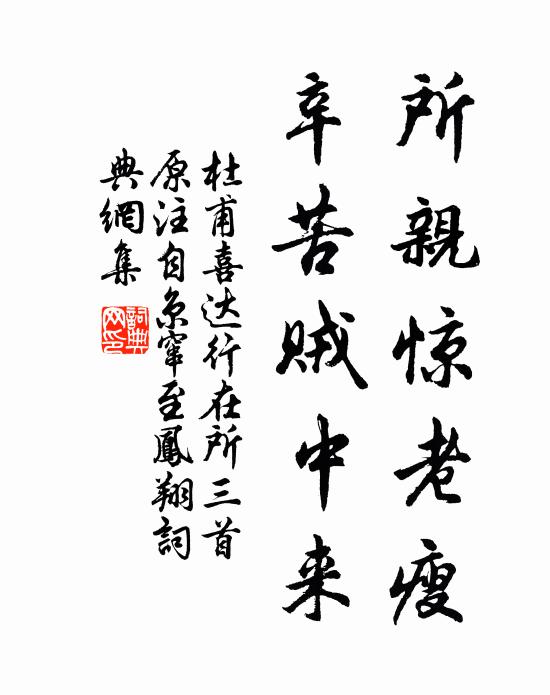 所親惊老瘦
辛苦贼中来
杜甫喜达行在所三首
原注自京窜至鳳翔詞
典網集
詞典网印